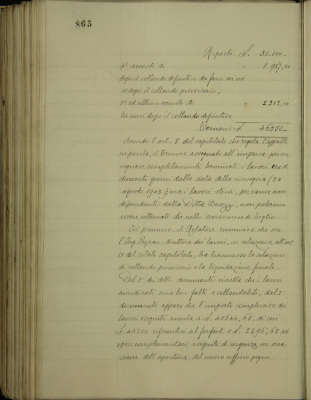 865
Riporto £. 38.000.-
4° acconto di
dopo il collaudo definitivo
e dopo il collaudo provvisorio;
5° ed ultimo acconto di
tre mesi dopo il collaudo definitivo
Sommano £. 46200.-
Secondo l'art. 8 del capitolato che regola l'appalto
in parola, il termine assegnato all'impresa per con
segnare completamente terminati i lavori era di
duecento giorni dalla data della consegna (20
agosto 1903) ma i lavori stessi, per cause non
dipendenti dalla Ditta, non poterono
essere ultimati che nella
Ciò premesso, il Relatore comunica che ora
l'Ing. direttore dei lavori, in relazione all'art
del citato capitolato, ha trasmesso la relazione
di collaudo provvisorio e la liquidazione finale.
Dal 1° dei detti documenti risulta che i lavori
suindicati sono ben fatti e collaudabili, dal 2°
documento appare che l'importo complessivo dei
lavori eseguiti ammonta a £. di cui
£. 46200 riferentisi al forfait e £. 2395,68 ad
opere complementari eseguite d'urgenza in occa
sione dell'apertura del nuovo ufficio